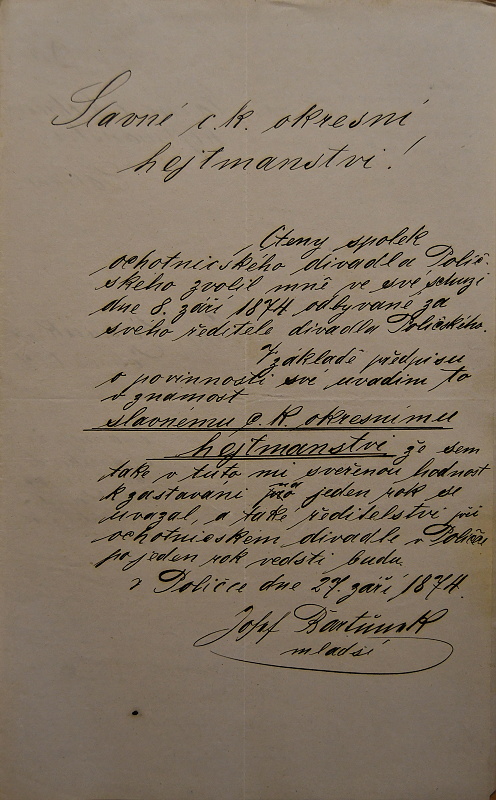 Slavné c.k. okresní
hejtmanství!
Ctěny spolek
ochotnického divadla Polič-
ského zvolil mně ve své schuzi
dne 8. září 1874 odbyvané za
svého ředitele divadla Poličského.
Vzákladě předpisu
o povinnosti své uvadim to
v znamost
slavnému c.k. okresnímu
hejtmanstvi že sem
také v tuto mi svěřenou hodnost
k zastavani na jeden rok se
uvazal, a také ředitelství při
ochotnickem divadle v Poličce
po jeden rok vedsti budu.
v Poličce dne 27. září 1874.
Josef Bartůnek
mladší